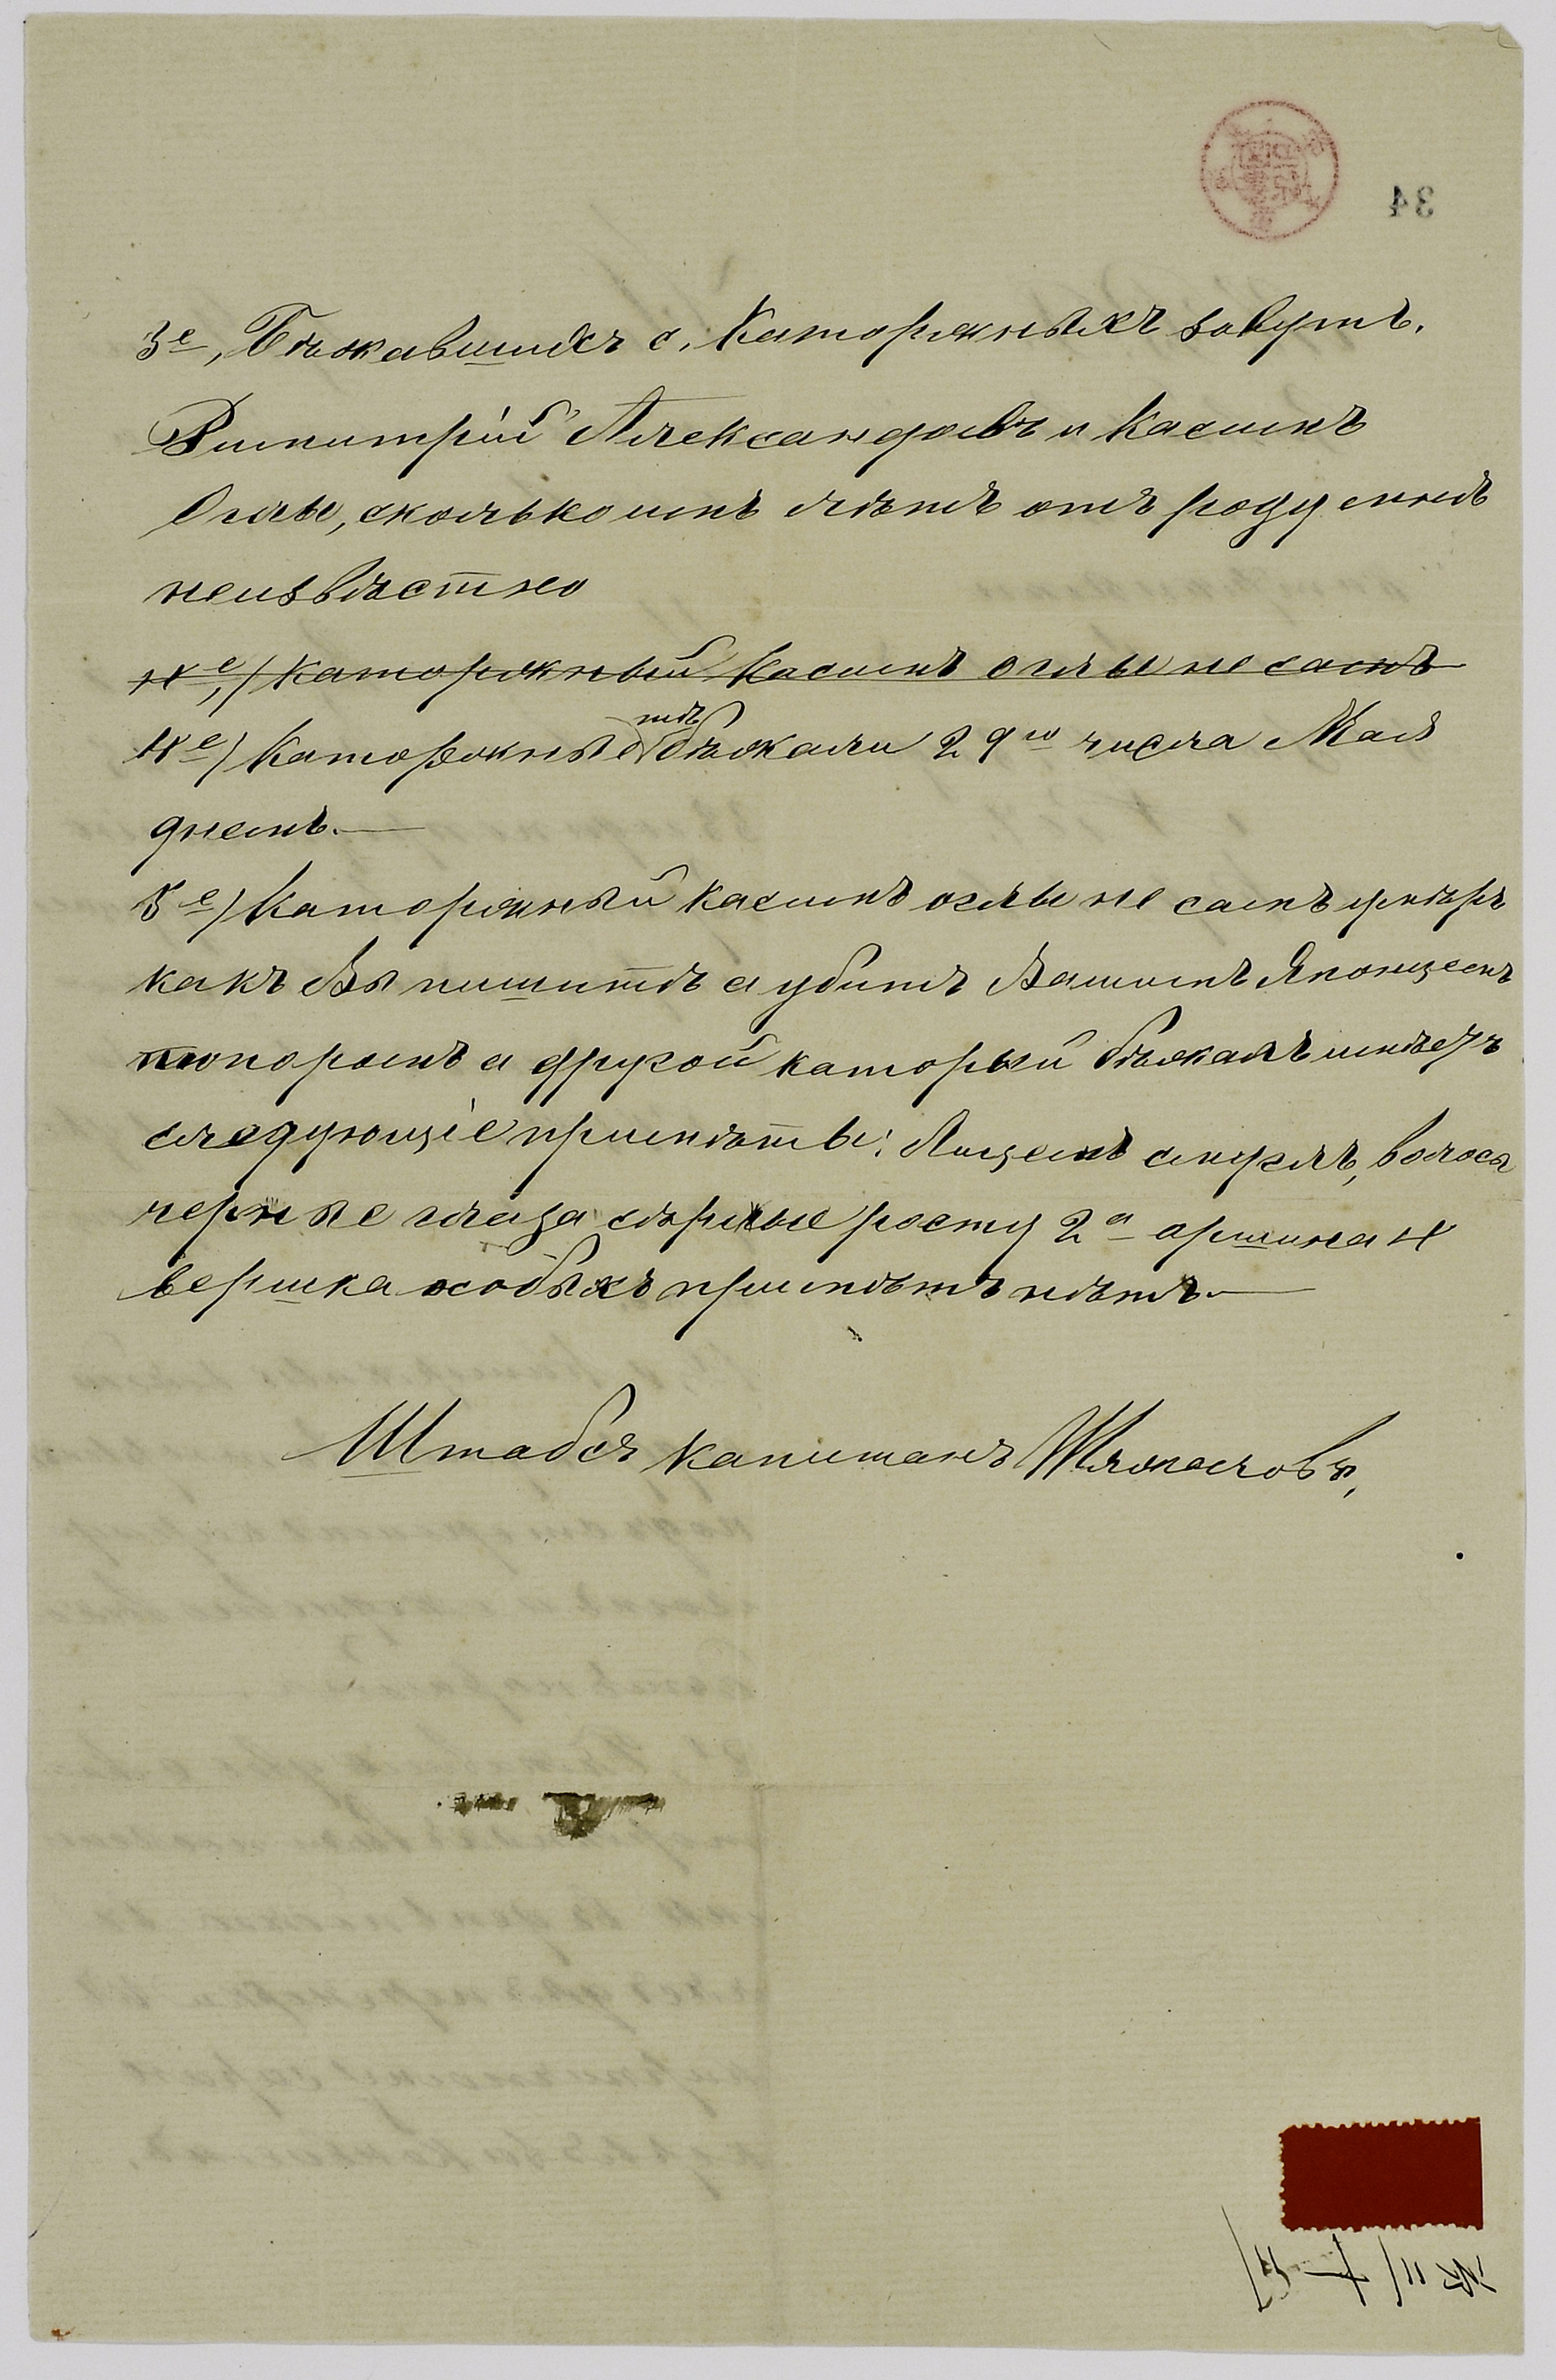 34
3е, Бѣжавшихъ с. Каторжныхъ зовутъ.
Димитрій Александровъ и Касимъ
Оглы, сколько имъ лѣтъ отъ роду мнѣ
неизвѣстно
4е,) Каторжный Касимъ оглы не самъ
4е) Каторжные бѣжали 29го числа Мая
днемъ.—
5е) Каторжный Касимъ оглы не самъ умѣръ
какъ Вы пишитѣ а убитъ Вашимъ Японцемъ
топоромъ а другой каторый бѣжалъ имѣетъ
следующіе примѣты: Лицемъ смуглъ, волоса
черные глаза сѣрые росту 2а аршина 4
вершка особыхъ примѣтъ нѣтъ.—
Штабсъ капитанъ